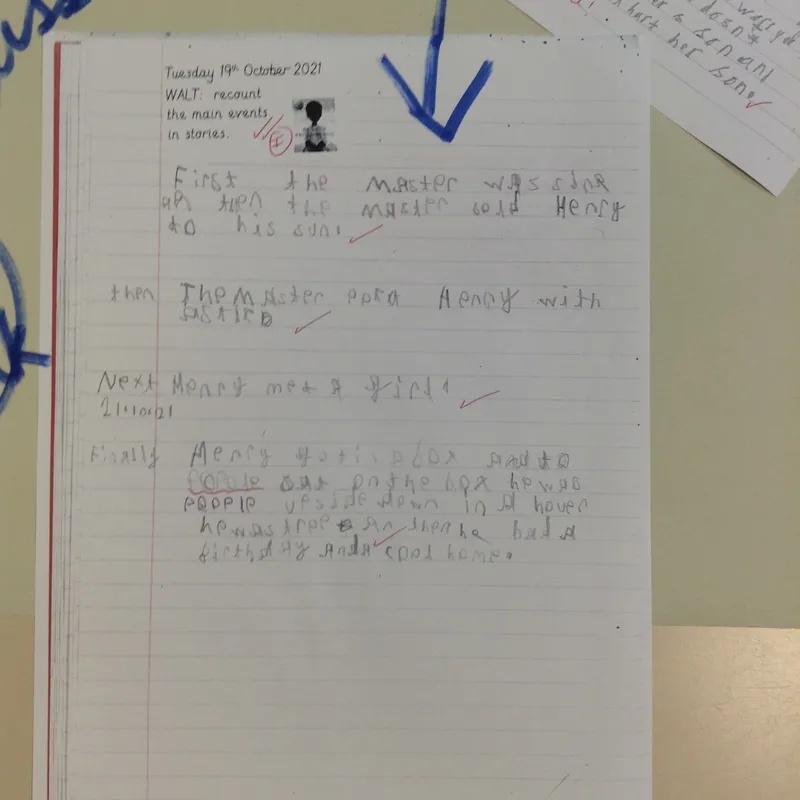 Tuesday 19th October 2021
WALT: recount
the main events
in stories.
I
First the master was sick
an then the master sold Henry
to his sun.
then The master Henry with
Next Henry met a girl
21.10.21
Finally Henry got in a box and to
people sat on the box he was
people upside down in a hour
he was free an then he had a
firthday and a good home.
a son and
her son.